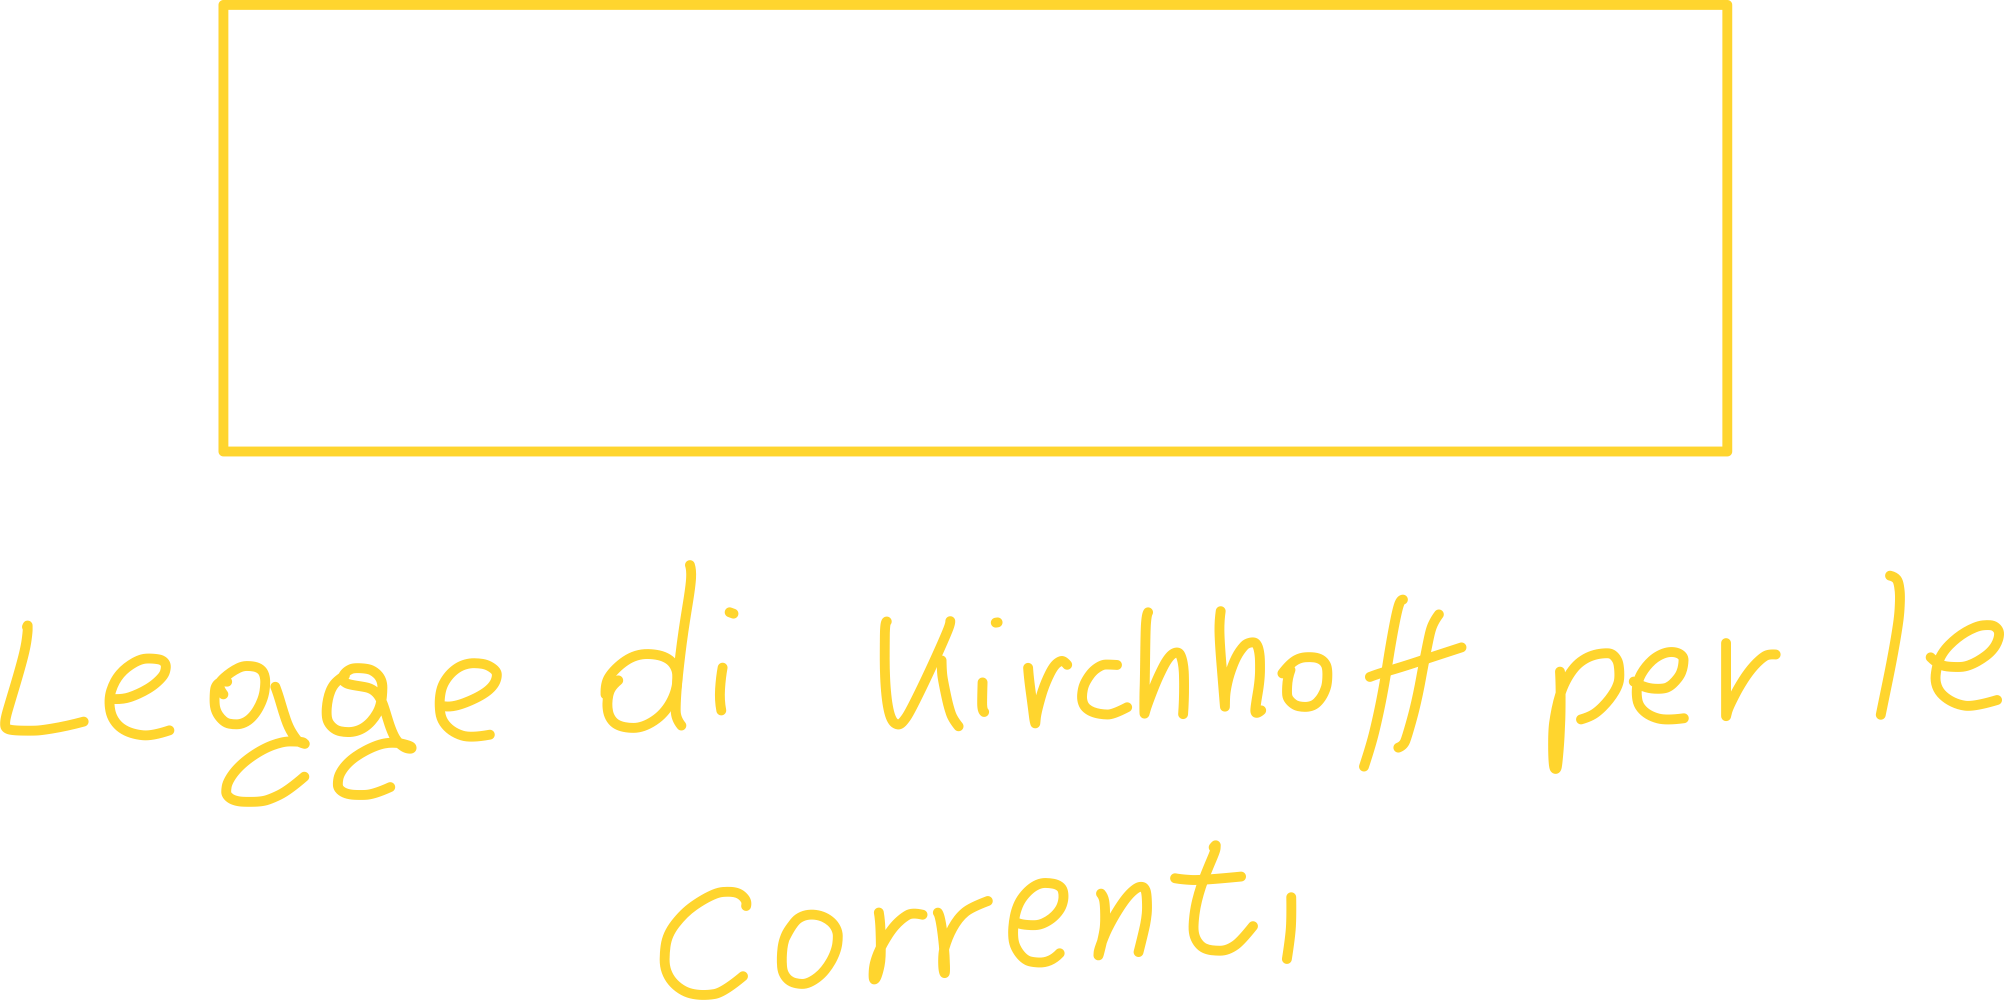 Legge di Kirchhoff per le
Correnti